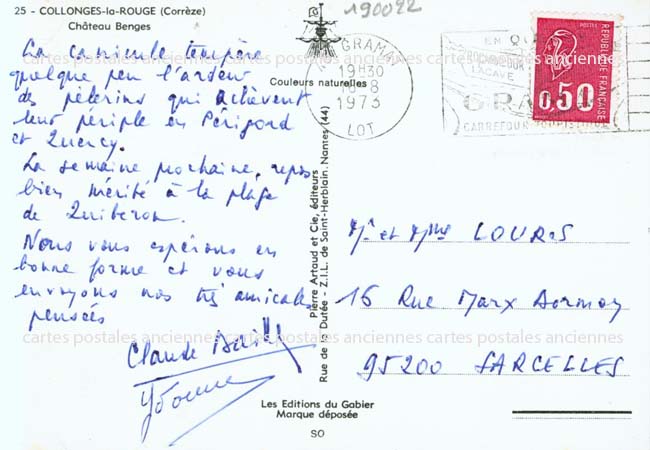 25 - COLLONGES-la-ROUGE (Corrèze)
Château Benges
190022
La canicule tempère
quelque peu l'ardeur
des pèlerins qui achèvent
leur périple en Périgord
et Quercy.
La semaine prochaine, repos
bien mérité à la plage
de Quiberon.
Nous vous espérons en
bonne forme et vous
envoyons nos très amicales
pensées
Claude
Yvonne
Couleurs naturelles
Pierre Artaud et Cie, éditeurs
Rue de la Dutée - Z.I.L. de Saint-Herblain. Nantes (44)
GRAMAT
19H30
1973
LOT
EN QUERCY
LACAVE
GRAMAT
CARREFOUR TOURISTIQUE
POSTES
REPUBLIQUE FRANÇAISE
0,50
Mr et Mme LOURS
16 Rue Marx Dormoy
95200 SARCELLES
cartes postales anciennes cartes postales anciennes cartes postales anciennes
cartes postales anciennes cartes postales anciennes cartes postales anciennes
Les Editions du Gabier
Marque déposée
SO